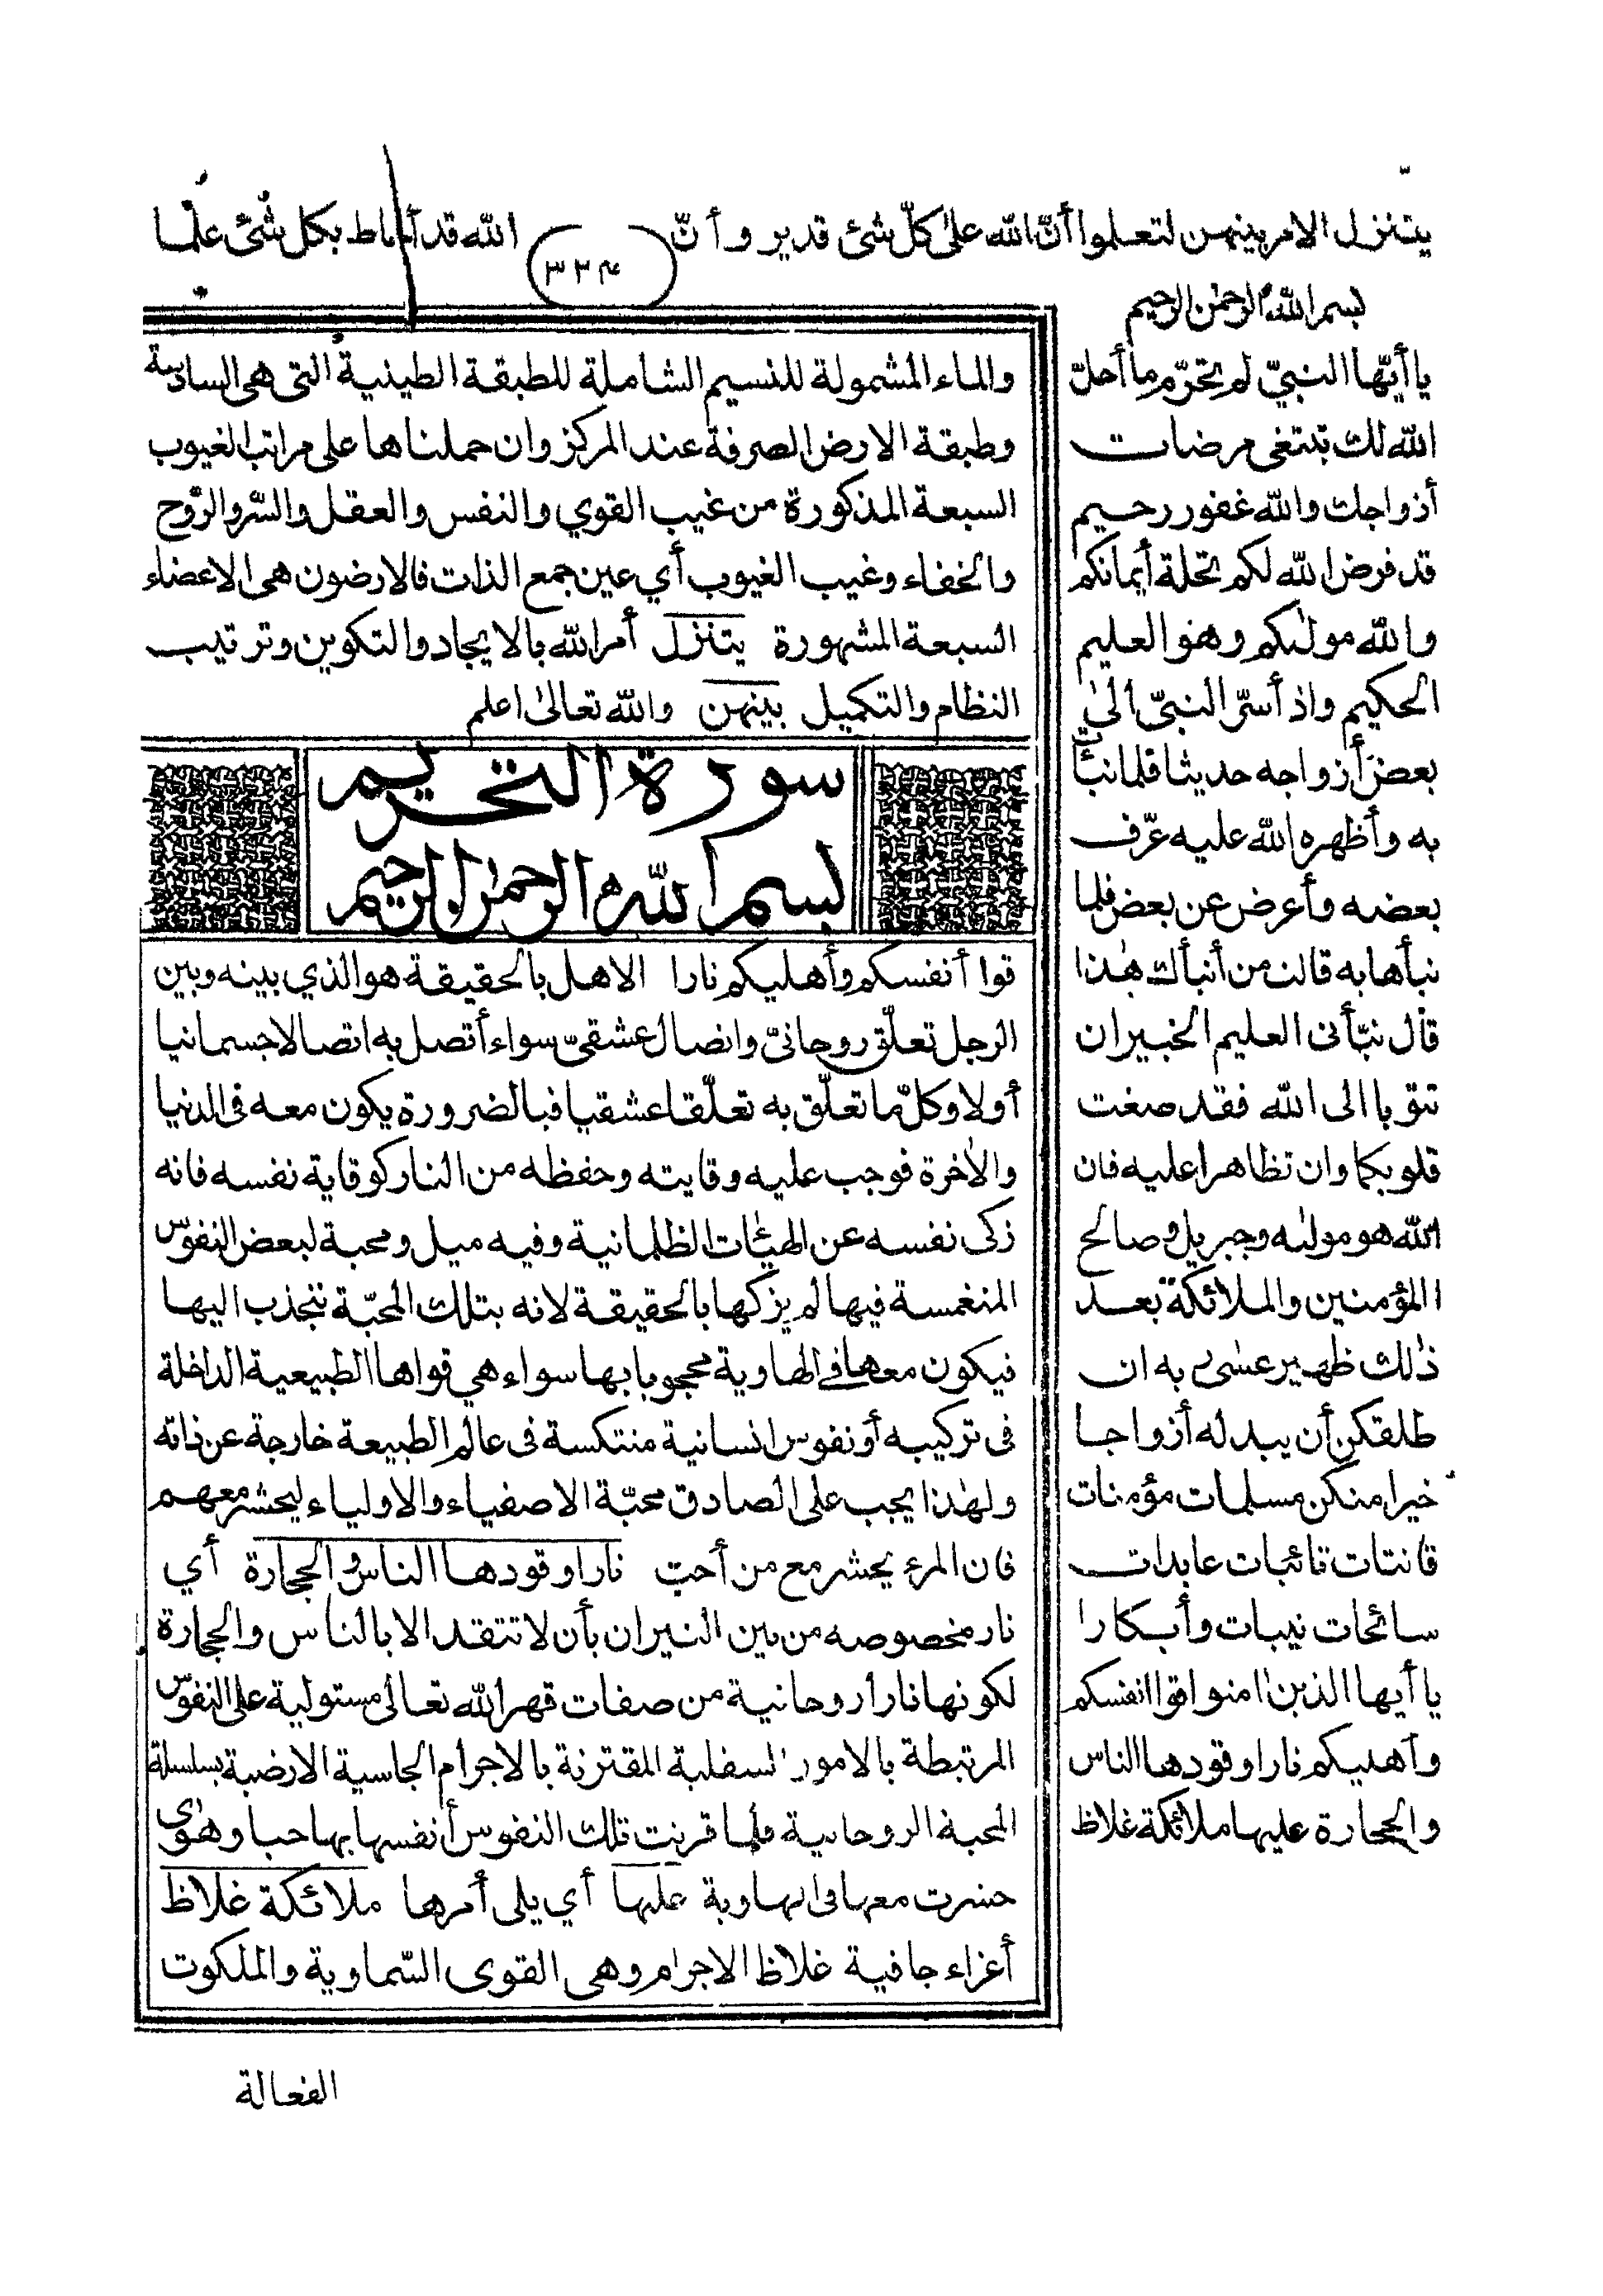 يتنزل الامر بينهن لتعلموا أنّ الله على كلّ شئ قدير وأنّ الله قد أحاط بكل شئ علما
٣٣٤
بسم الله الرحمن الرحيم
يا أيّها النبيّ لم تحرّم ما أحلّ
الله لك تبتغى مرضات
أزواجك والله غفور رحيم
قد فرض الله لكم تحلة أيمانكم
والله موليٰكم وهو العليم
الحكيم واذ أسرّ النبيّ الى
بعض أزواجه حديثا فلما نبأت
به وأظهره الله عليه عرّف
بعضه وأعرض عن بعض فلما
نبأها به قالت من أنبأك هٰذا
قال نبّأنى العليم الخبير ان
تتوبا الى الله فقد صغت
قلوبكما وان تظاهرا عليه فان
الله هو موليٰه وجبريل وصالح
المؤمنين والملائكة بعد
ذٰلك ظهير عسٰى ربه ان
طلقكن أن يبدله أزواجا
خيرا منكن مسلمات مؤمنات
قانتات تائبات عابدات
سائحات ثيبات وأبكارا
يا أيها الذين اٰمنوا قوا انفسكم
وأهليكم نارا وقودها الناس
والحجارة عليها ملائكة غلاظ
والماء المشمولة للنسيم الشاملة للطبقة الطينية التى هى السادسة
وطبقة الارض الصرفة عند المركز وان حملناها على مراتب الغيوب
السبعة المذكورة من غيب القوي والنفس والعقل والسّر والرّوح
والخفاء وغيب الغيوب أي عين جمع الذات فالارضون هى الاعضاء
السبعة المشهورة يتنزل أمر الله بالايجاد والتكوين وترتيب
النظام والتكميل بينهن والله تعالىٰ اعلم
سورة التحريم
بسم الله الرحمٰن الرحيم
قوا أنفسكم وأهليكم نارا الاهل بالحقيقة هو الذي بينه وبين
الرجل تعلّق روحانىّ واتصال عشقىّ سواء أتصل به اتصالا جسمانيا
أولا وكلّ ما تعلّق به تعلّقا عشقيا فبالضرورة يكون معه فى الدنيا
والاٰخرة فوجب عليه وقايته وحفظه من النار كوقاية نفسه فانه
زكى نفسه عن الهيئات الظلمانية وفيه ميل ومحبة لبعض النفوس
المنغمسة فيها لم يزكها بالحقيقة لانه بتلك المحبّة ينجذب اليها
فيكون معها فى الهاوية محجوبا بها سواء هي قواها الطبيعية الداخلة
فى تركيبه أو نفوس انسانية منتكسة فى عالم الطبيعة خارجة عن ذاته
ولهٰذا يجب على الصادق محبّة الاصفياء والاولياء ليحشر معهم
فان المرء يحشر مع من أحبّ نارا وقودها الناس والحجارة أي
نار مخصوصه من بين النيران بأن لا تتقد الا بالناس والحجارة
لكونها نارا روحانية من صفات قهر الله تعالى مستولية على النفوس
المرتبطة بالامور السفلية المقترنة بالاجرام الجاسية الارضية بسلسلة
المحبة الروحانية فلما قرنت تلك النفوس أنفسها بها حبا وهوى
حشرت معها فى الهاوية عليها أي يلى أمرها ملائكة غلاظ
أعزاء جافية غلاظ الاجرام وهى القوى السّماوية والملكوت
الفعالة